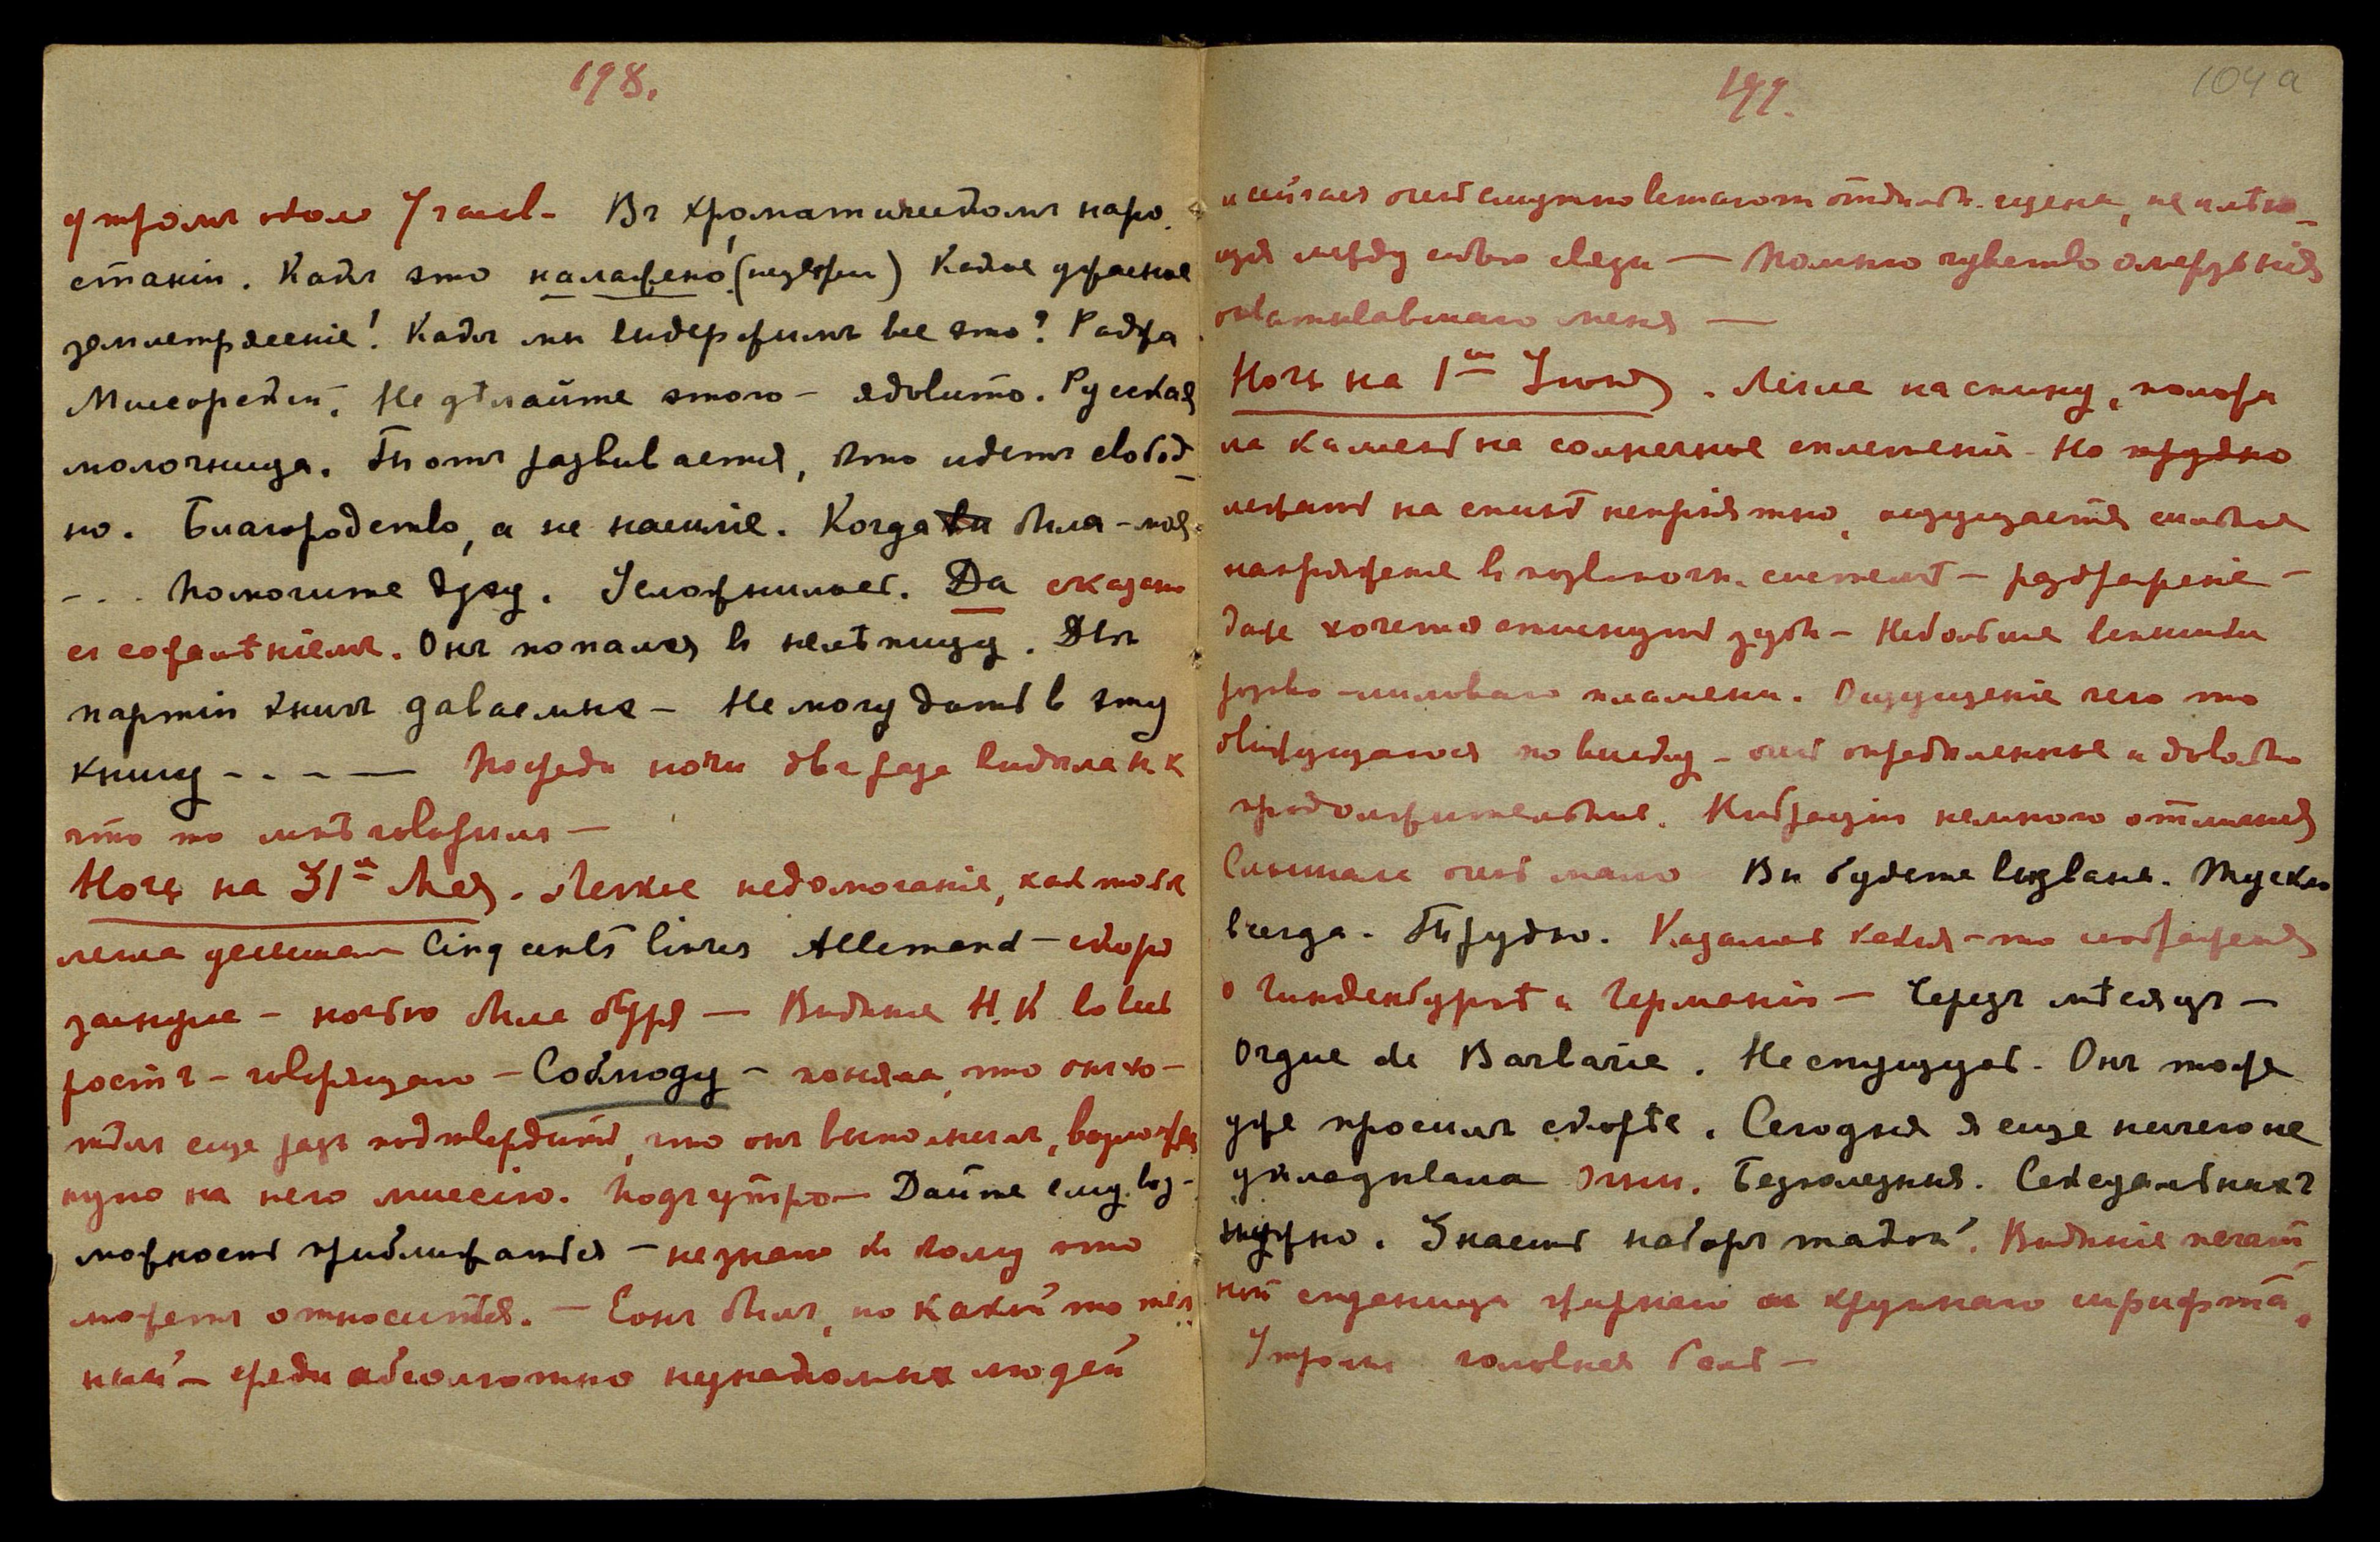 198.
утромъ около 7 часов- Въ хроматическомъ наро-
станіи. Какъ это налажено! (изверги) Какое ужасное
землетрясеніе! Какъ мы выдержимъ все это? Раджа
Не дѣлайте этого – ядовито. Русская
молочница. Тотъ развивается, кто идетъ свобод-
но. Благородство, а не насиліе. Когда вы была – моя
- . . Помогите другу. Усложнилось. Да сказано
съ сожалѣніемъ. Онъ попался въ нелѣпицу. Двѣ
партіи книгъ даваемыхъ – Не могу дать в эту
книгу - . - — Посреди ночи два раза видѣла Н. К
что то мнѣ говорилъ —
Ночь на 31ое Мая. Легкое недомоганіе, как только
легла услышала Cinq cents livres Allemand – скоро
заснула – ночью была буря — Видѣніе Н. К. во весь
ростъ – говорящаго – Соблюду – поняла, что онъ хо-
тѣлъ еще разъ подтвердить, что онъ выполнилъ, возложен
ную на него миссію. Подъ утро — Дайте ему воз-
можность приблизиться – не знаю къ кому это
можетъ относиться. — Сонъ былъ, но какой то тем
ный – среди абсолютно незнакомыхъ людей
199.
104 а
и сейчасъ очень смутно встаютъ отдѣльн. сцены, не имѣю-
щія между собою связи — Помню чувство омерзѣнія
охватывавшаго меня —
Ночь на 1ое Іюня. Легла на спину, положи
ла камень на солнечное сплетеніе. Но трудно
лежать на спинѣ непріятно, ощущается сильное
напряженіе въ позвоночн. системѣ – раздраженіе –
даже хочется стиснуть зубы – Небольшіе вспышки
розово-лиловаго пламени. Ощущеніе чего то
движущагося по виску – очень опредѣленное и довольно
продолжительное. Вибраціи немного отличныя
Слышала очень мало Вы будете вызваны. Тускло
всегда. Трудно. Казались какія-то соображенія
о Гинденбургѣ и Германіи — Черезъ мѣсяцъ —
Orgue de Barbarie. Не спущусь. Онъ тоже
уже просилъ скорѣе. Сегодня я еще ничего не
укладывала Безполезныя.
нужно. Знаешь наборъ такой. Видѣніе печат
ной страницы жирнаго и крупнаго шрифта.
Утромъ головная боль —